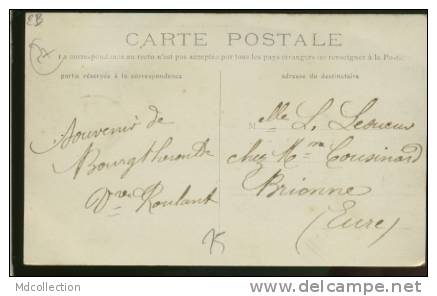 EB
CARTE POSTALE
La correspondance au recto n'est pas acceptée par tous les pays étrangers se renseigner à la Poste
partie réservée à la correspondance
adresse du destinataire
Souvenir de
Bourgtheroulde
Vve Roulant
Melle L. Lesueur
chez Mme Cousinard
Brionne
(Eure)
Mdcollection
www.delcampe.net